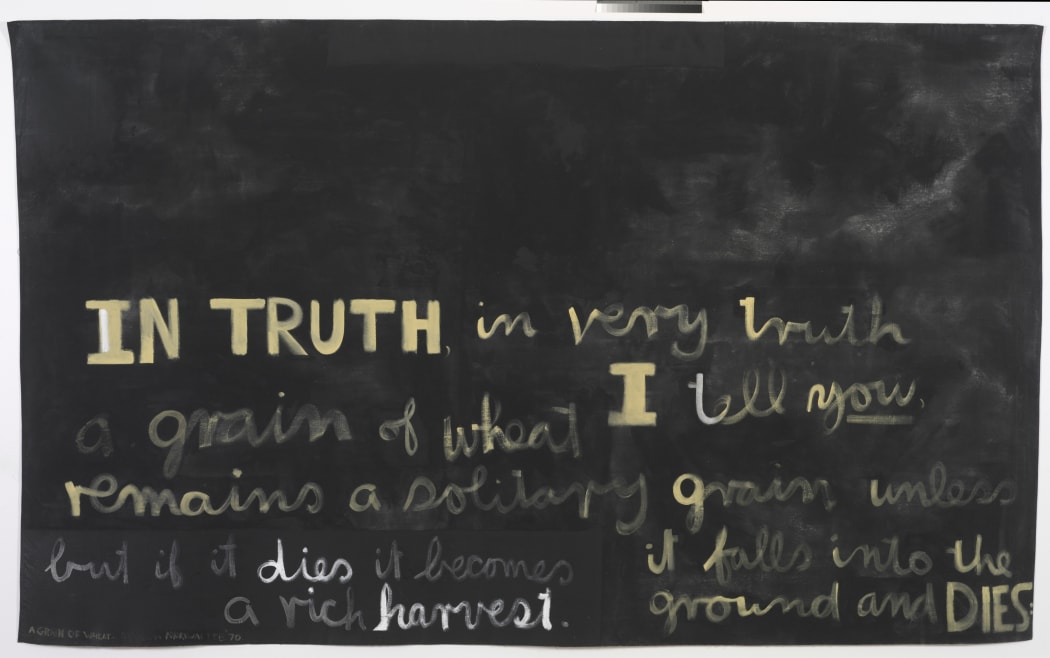 IN TRUTH, in very truth
I tell you,
a grain of wheat
remains a solitary grain unless
it falls into the
ground and DIES:
but if it dies it becomes
a rich harvest.
A GRAIN OF WHEAT '70